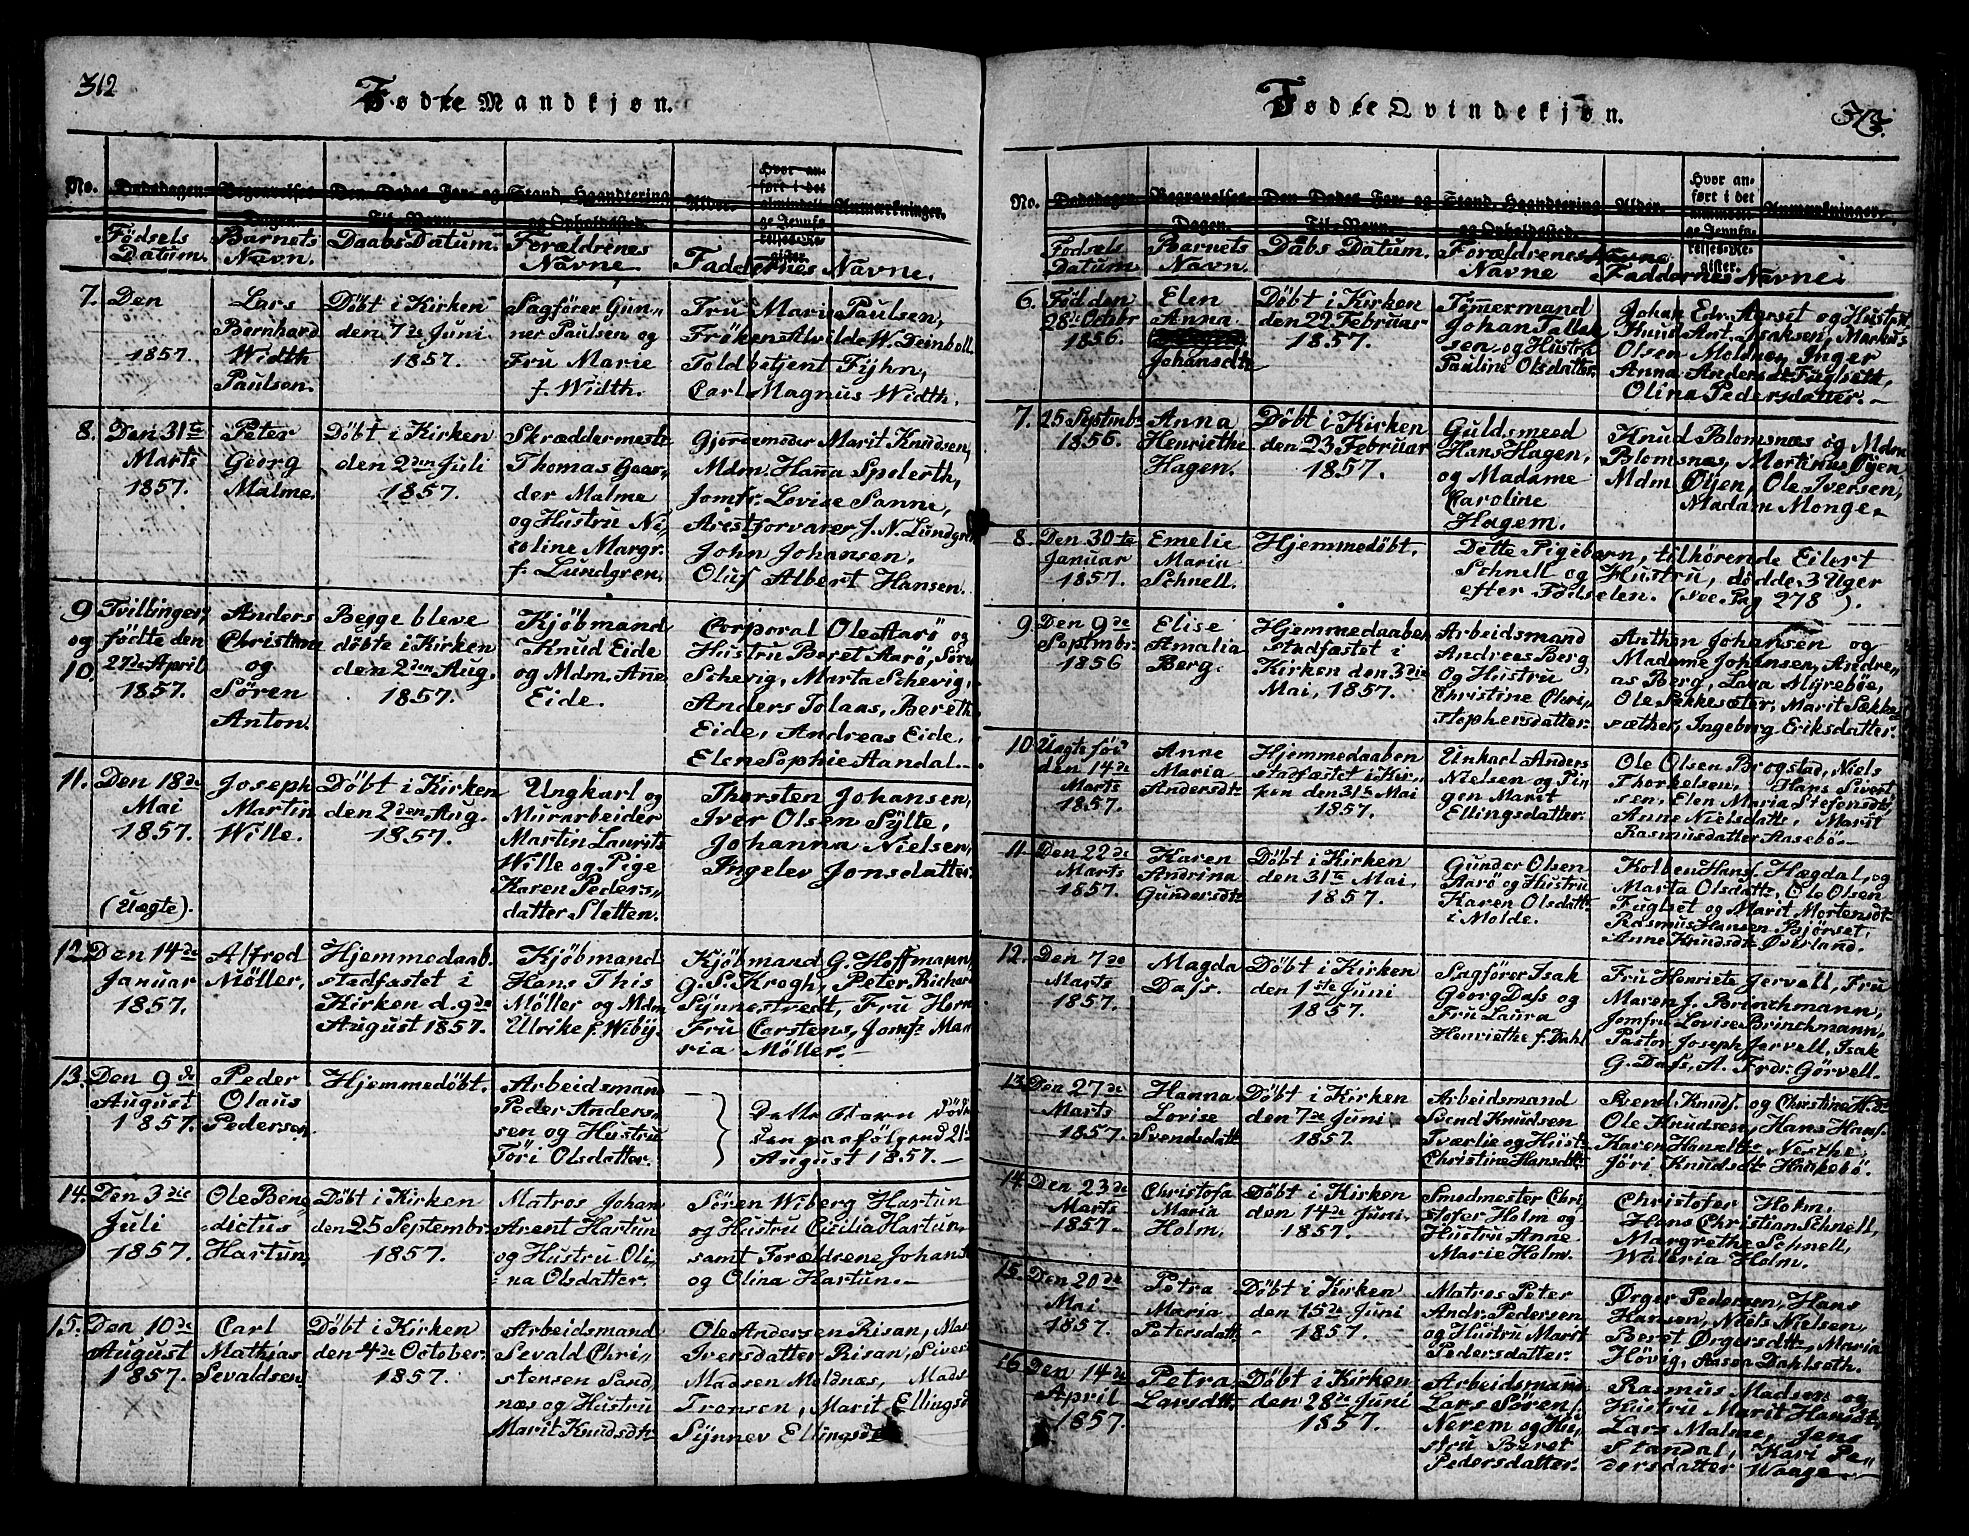 312
Fødte Mandkjøn.
No. Dødsdagen. Begravelses Dagen. Den Dødes For- og Til-Navn. Stand, Haandtering og Opholdssted. Alder. Hvor anført i det almindelige Jevnførelses-Register. Anmærkninger.
Fødsels Datum. Barnets Navn. Daabs Datum. Forældrenes Navne. Faddernes Navne.
7. Den
1857.
Lars
Bernhard
Width
Paulsen.
Döbt i Kirken
den 7de Juni
1857.
Sagförer Gun„
ner Paulsen og
Fru Marie
f. Width.
Fru Mari Paulsen,
Fröken Alvilde W. Deinboll.
Toldbetjent Fijhn,
Carl Magnus Width.
8. Den 31te
Marts
1857.
Peter
Georg
Malme.
Döbt i Kirken
den 2den Juli
1857.
Skræddermestr
Thomas Gaar„
der Malme
og Hustru Ni„
coline Margr.
f. Lundgren.
Gjordemoder Marit Knudsen,
Mdm. Hanna Spolerth,
Jomfr. Lovise Sanne,
Arestforvarer J. N. Lundgren
John Johansen,
Oluf Albert Hansen.
9
og
10.
Tvillinger,
födte den
27de April
1857.
Anders
Christian
og
Sören
Anton.
Begge bleve
döbte i Kirken
den 2den Aug.
1857.
Kjöbmand
Knud Eide
og Mdm. Anne
Eide.
Corporal Ole Aarö og
Hustru Beret Aarö, Sören
Schevig, Marta Schevig,
Anders Tolaas, Bereth
Eide, Andreas Eide,
Elen Sophie Aandal.
11. Den 18de
Mai
1857.
(Uægte).
Joseph
Martin
Wille.
Döbt i Kirken
den 2den Aug.
1857.
Ungkarl og
Murarbeider
Martin Laurits
Wille og Pige
Karen Peders„
datter Sletten.
Thorsten Johansen,
Iver Olsen Sylte,
Johanna Nielsen,
Ingelev Jonsdatter.
12. Den 14de
Januar
1857.
Alfred
Möller.
Hjemmedaab.
stadfæstet i
Kirken d. 9de
August 1857.
Kjöbmand
Hans This
Möller og Mdm
Ulrike f. Wiby.
Kjöbmand G. Hoffmann,
G. S. Krogh, Peter Richard
Synnestvedt, Fru Horn
Fru Carstens, Jomfr. Mar
ria Möller.
13. Den 9de
August
1857.
Peder
Olaus
Pedersen.
Hjemmedöbt.
Arbeidsmand
Peder Anders„
sen og Hustru
Töri Olsdatter.
Dette Barn döde
den paafölgend 21de
August 1857.
14. Den 3die
Juli
1857.
Ole Bene
dictus
Hartun.
Döbt i Kirken
den 25 Septembr.
1857.
Matros Johan
Arent Hartun
og Hustru Oli„
na Olsdatter.
Sören Wiberg Hartun
og Hustru Cecilia Hartun,
samt Forældrene Johan
og Olina Hartun.
15. Den 10de
August
1857.
Carl
Mathias
Sevaldsen.
Döbt i Kirken
den 4de October.
1857.
Arbeidsmand
Sevald Chri„
stensen Sand„
næs og Hustru
Marit Knudsdtr
Ole Andersen Risan,
Iversdatter Risan, Sivert
Madsen Moldnæs, Mads
Trensen, Marit Ellingsd
Synnev Ellingsdt
313.
Fødte Qvindekjøn.
No. Dødsdagen. Begravelses Dagen. Den Dødes For- og Til-Navn. Stand, Haandtering og Opholdssted. Alder. Hvor anført i det almindelige Jevnførelses-Register. Anmærkninger.
Fødsels Datum. Barnets Navn. Daabs Datum. Forældrenes Navne. Faddernes Navne.
6. Föd den
28de Octobr
1856.
Elen
Anna
Johansdtr
Döbt i Kirken
den 22 Februar
1857.
Tömmermand
Johan Tolle
sen og Hustru
Pauline Olsdatter.
Johan Edv. Aarset og Hustru
Knud Ant. Isaksen, Markus
Olsen Moldnes, Inger
Anna Andersdt Fuglset,
Olina Pedersdatter.
7. 25 Septembr
1856.
Anna
Henriethe
Hagen.
Döbt i Kirken
den 23 Februar
1857.
Guldsmeed
Hans Hagen,
og Madame
Caroline
Hagem.
Knud Blomsnæs og Mdm
Blomsnæs, Mortinus Øyen
Mdm Øyen, Ole Iversen,
Madam Monge.
8. Den 30te
Januar
1857.
Emelie
Maria
Schnell.
Hjemmedöbt.
Dette Pigebarn, tilhörende Eilert
Schnell og Hustru, dödde 3 Uger
efter Födselen. (See Pag 278).
9. Den 9de
Septembr
1856
Elise
Amalia
Berg.
Hjemmedaaben
stadfæstet i
Kirken den 3die
Mai, 1857.
Arbeidsmand
Andreas Berg,
og Hustru
Christine Chri„
stophersdatter.
Anthon Johansen og
Madame Johansen, Andre„
as Berg, Lava Myreböe,
Ole Sekkesæter, Marit Sekke
sæther, Ingeborg Eriksdatter.
10. Uægte föd
den 14de
Marts
1857.
Anne
Maria
Andersdtr
Hjemmedaaben
stadfæstet i Kir„
ken den 31te Mai
1857.
Unkarl Anders
Nielsen og Pi„
gen Marit
Ellingsdatter.
Ole Olsen Brogstad, Niels
Thorkelsen, Hans Sivert
sen, Elen Maria Stefensdtr
Anne Nielsdatte, Marit
Rasmusdatter Aasebö.
11. Den 22de
Marts
1857.
Karen
Andrina
Gundersdtr
Döbt i Kirken
den 31te Mai,
1857.
Gunder Olsen
Aarö og Hustru
Karen Olsdattr
i Molde.
Kolben Hans. Hægdal, og
Marta Olsdattr, Ole Olsen
Fuglset og Marit Mortensdt
Rasmus Hansen Bjørset,
Anne Knudsdt Øverland.
12. Den 7de
Marts
1857.
Magda
Dass.
Döbt i Kirken
den 1ste Juni
1857.
Sagförer Isak
Georg Dass og
Fru Laura
Henriethe f. Dahl
Fru Henriete Jervell, Fru
Maren J. Brinchmann,
Jomfru Lovise Brinchmann,
Pastor Joseph Jervell, Isak
G. Dass, A. Frdr. Görvell.
13. Den 27de
Marts
1857.
Hanna
Lovise
Svendsdattr
Döbt i Kirken
den 7de Juni
1857.
Arbeidsmand
Svend Knudsen
Tværlie og Hustr
Christine Hansdtr.
Svend Knuds. og Christine H.dt
Ole Knudsen, Hans Hans.
Karen Hansdtr Nerthe,
Jöri Knudsdt Haukebö.
14. Den 23de
Marts
1857.
Christofa
Maria
Holm.
Döbt i Kirken
den 14de Juni.
1857.
Smedmester Chri„
stofer Holm og
Hustru Anne
Marie Holm.
Christofer Holm,
Hans Christian Schnell,
Margrethe Schnell,
Waleria Holm.
15. Den 20de
Mai
1857.
Petra
Maria
Petersdatt.
Döbt i Kirken
den 15de Juni
1857.
Matros Peter
Andr. Pedersen
og Hustru Marit
Pedersdatter.
Ørger Pedersen, Hans
Hansen, Niels Nielsen,
Beret Ørgersdtr, Maria
Hövig, Aasoa Dahlseth.
16. Den 14de
April
1857.
Petra
Larsdtr.
Döbt i Kirken
den 28de Juni
1857.
Arbeidsmand
Lars Sörens.
Nerem og Hu„
stru Beret
Pedersdatter.
Rasmus Madsen og
Hustru Marit Hansdt,
Lars Malme, Jens
Standal, Kari Pe„
dersdatter Waage